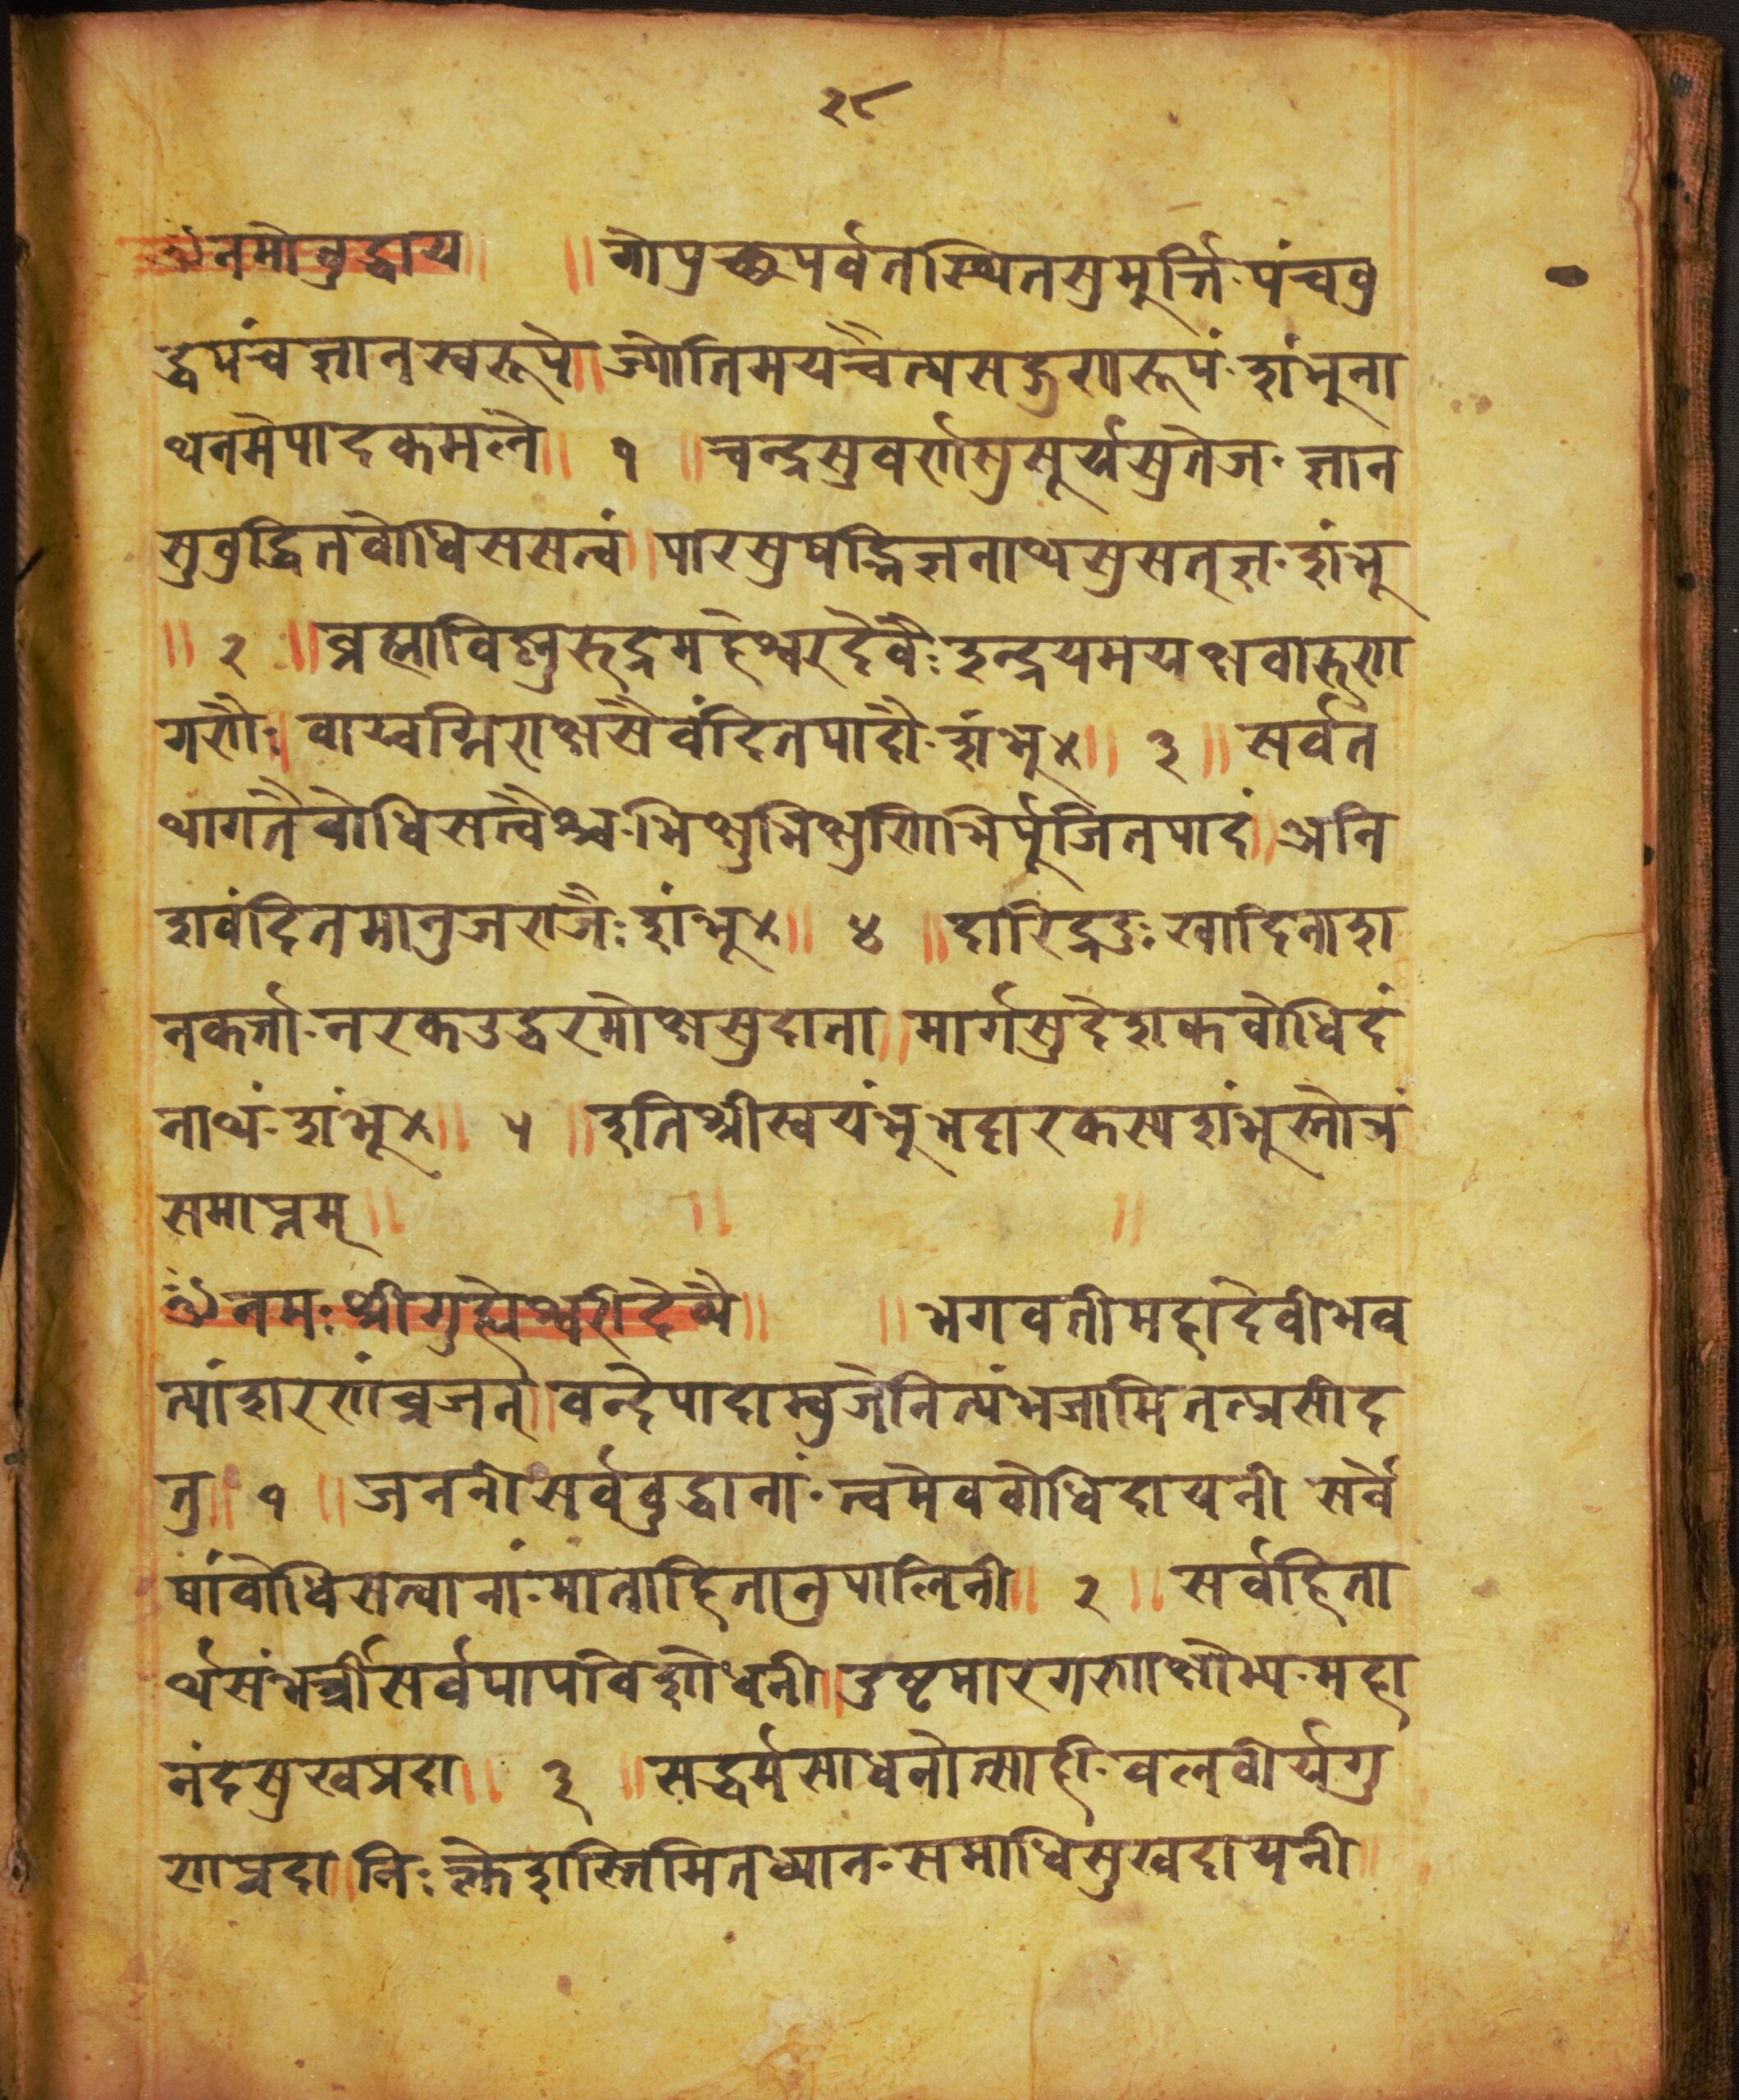 २८
ॐ नमो वुद्धाय ॥ ॥ गोपुच्छपर्वतस्थितसुमुर्त्ति-पंचवु
द्धपंचज्ञानस्वरूपे ॥ ज्योतिमयचैत्यसद्गुणरूपं-शंभुना
थनमेपादकमले ॥ १ ॥ चन्द्रसुवर्णसुसूर्यसुतेज-ज्ञान
सुवुद्धितवोधिससत्वं ॥ पारसुषद्भिज्ञनाथसुसत्ज्ञ-शंभू
॥ २ ॥ व्रह्माविष्णुरुद्रमहेश्वरदेवैः इन्द्रयमयक्षवारुण
गणैः ॥ वाय्वग्निराक्षसैर्वंदितपादौ-शंभु× ॥ ३ ॥ सर्वत
थागतैवोधिसत्वैश्च-भिक्षुभिक्षुणिभिर्पूजितपादं ॥ अनि
शवंदितमानुजराजैः शंभू× ॥ ४ ॥ दारिद्रदुःखादिनाश
नकर्त्ता-नरकउद्धरमोक्षसुदाता ॥ मार्गसुदेशकवोधिदं
नाथं-शंभू× ॥ ५ ॥ इतिश्रीस्वयंभूभट्टारकस्यशंभुस्तोत्रं
समाप्तम् ॥ ॥ ॥
ॐ नमः श्रीगुह्येश्वरीदेव्यै ॥ ॥ भगवतीमहादेवीभव
त्यांशरणंव्रजेत् ॥ वन्देपादाम्वुजेनित्यंभजामितत्प्रसीद
तु ॥ १ ॥ जननीसर्ववुद्धानां-त्वमेववोधिदायनी सर्वे
षांवोधिसत्वानां-माताहितानुपालिनी ॥ २ ॥ सर्वहिता
र्थसंभर्त्त्रीसर्वपापविशोधनी ॥ दुष्टमारगणाक्षोभ्य-महा
नंदसुखप्रदा ॥ ३ ॥ सद्धर्मसाधनोत्साही-वलवीर्यगु
णप्रदा ॥ निःक्लेशस्तिमितध्यान-समाधिसुखदायनी ॥